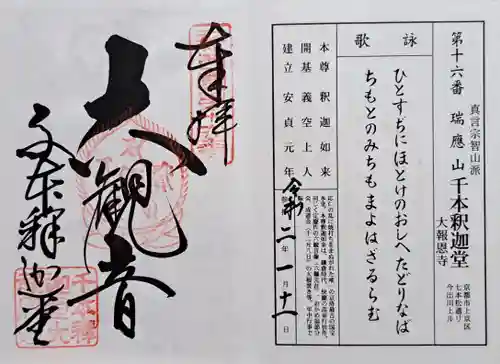 奉拝
六観音
千本釈迦堂
第十六番 瑞應山 千本釈迦堂
真言宗智山派
大報恩寺
京都市上京区
七本松通り
今出川上ル
詠歌
ひとすぢにほとけのおしへたどりなば
ちもとのみちもまよはざるらむ
本尊 釈迦如来
開基 義空上人
建立 安貞元年
令和二年一月十一日